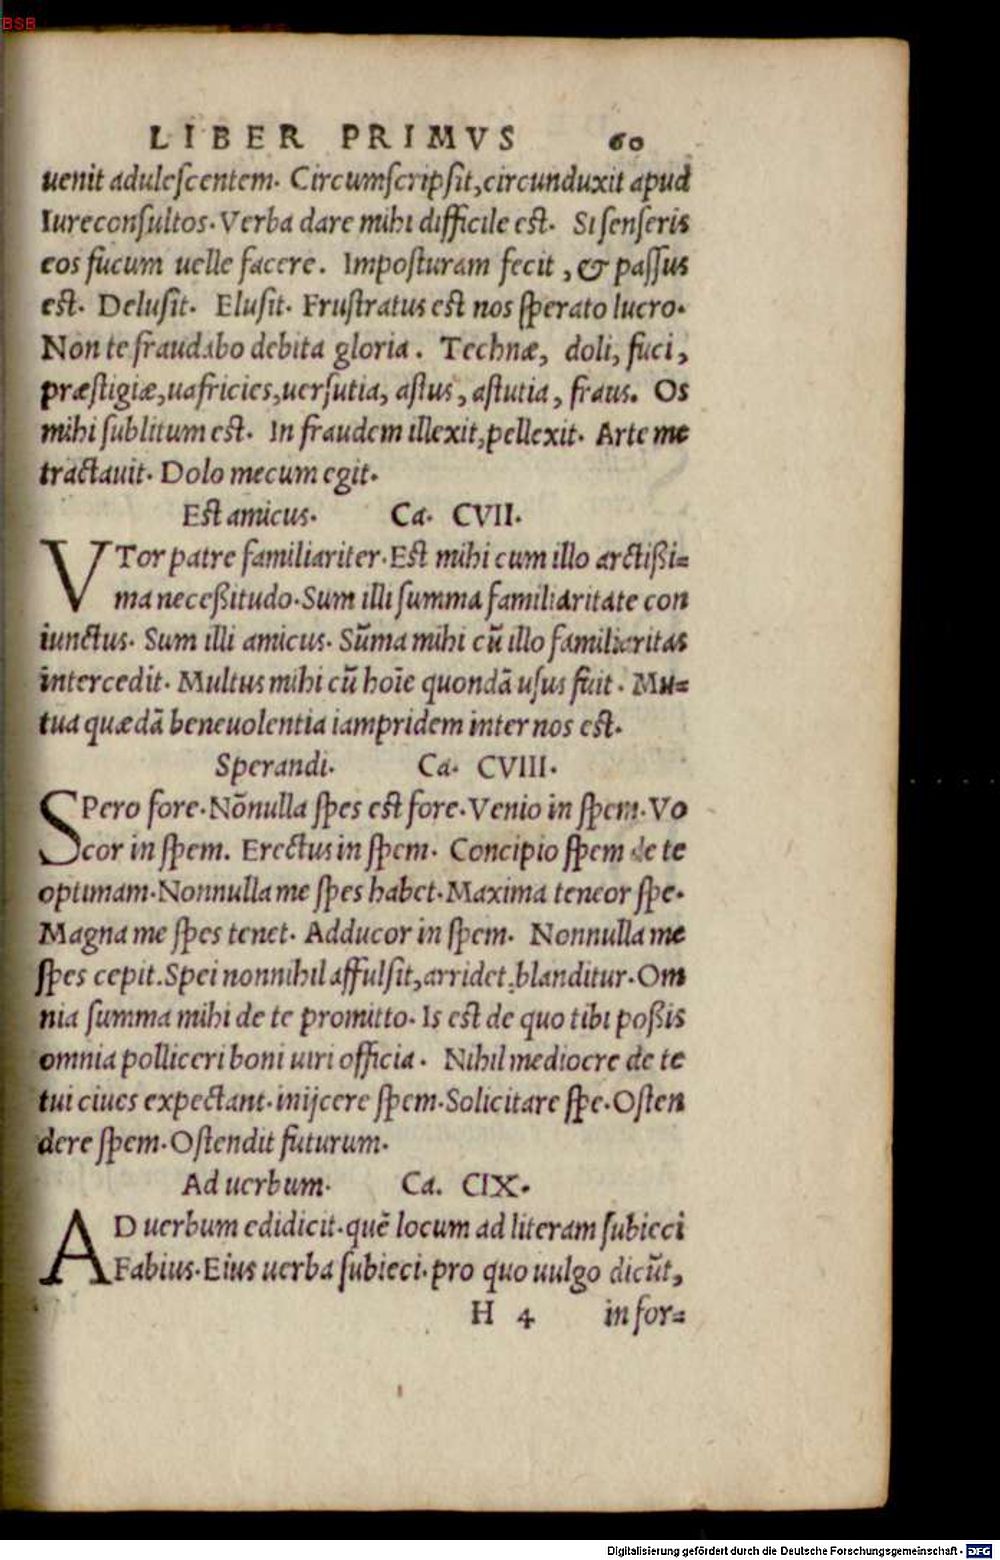 BSB
LIBER PRIMVS 60
uenit adulescentem. Circumscripsit, circunduxit apud
Iureconsultos. Verba dare mihi difficile est. Si senseris
eos fucum uelle facere. Imposturam fecit, & passus
est. Delusit. Elusit. Frustratus est nos sperato lucro.
Non te fraudabo debita gloria. Technæ, doli, fuci,
præstigiæ, uafricies, uersutia, astus, astutia, fraus. Os
mihi sublitum est. In fraudem illexit, pellexit. Arte me
tractauit. Dolo mecum egit.
Est amicus. Ca. CVII.
VTor patre familiariter. Est mihi cum illo arctißi=
ma neceßitudo. Sum illi summa familiaritate con
iunctus. Sum illi amicus. Sūma mihi cū illo familiaritas
intercedit. Multus mihi cū hoīe quondā usus fuit. Mu=
tua quædā beneuolentia iampridem inter nos est.
Sperandi. Ca. CVIII.
SPero fore. Nōnulla spes est fore. Venio in spem. Vo
cor in spem. Erectus in spem. Concipio spem de te
optimam. Nonnulla me spes habet. Maxima teneor spe.
Magna me spes tenet. Adducor in spem. Nonnulla me
spes cepit. Spei nonnihil affulsit, arridet, blanditur. Om
nia summa mihi de te promitto. Is est de quo tibi poßis
omnia polliceri boni uiri officia. Nihil mediocre de te
tui ciues expectant. inijcere spem. Solicitare spe. Osten
dere spem. Ostendit futurum.
Ad uerbum. Ca. CIX.
AD uerbum edidicit. quē locum ad literam subieci
Fabius. Eius uerba subieci. pro quo uulgo dicūt,
H 4 in for=
Digitalisierung gefördert durch die Deutsche Forschungsgemeinschaft - DFG